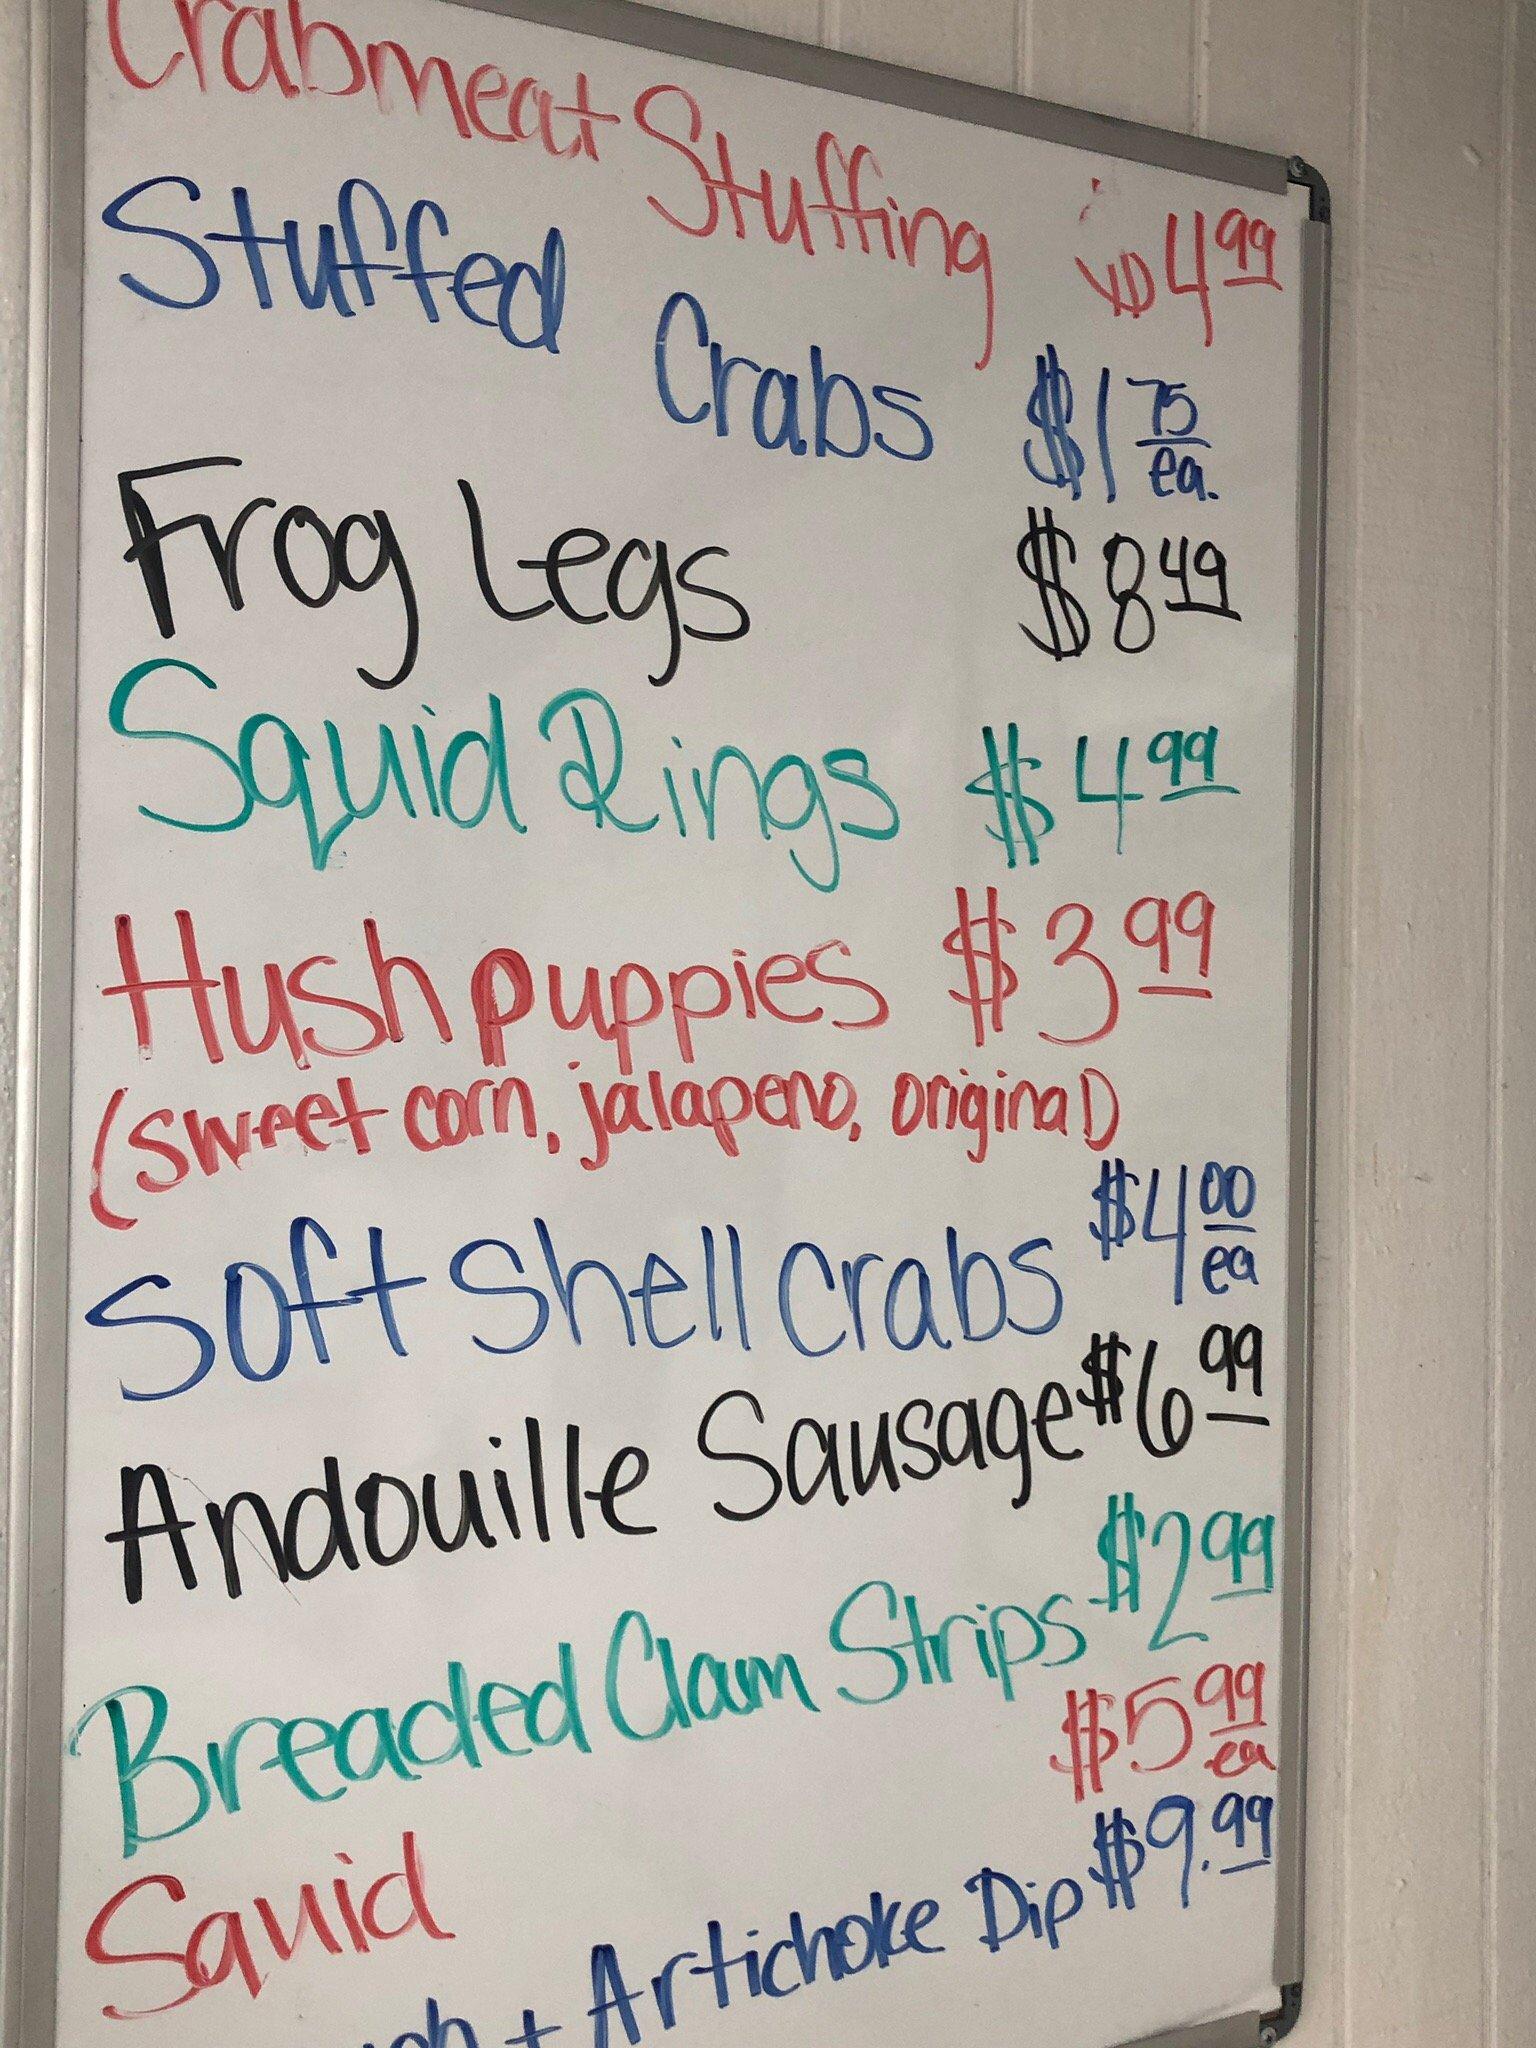 Crabmeat Stuffing $4.99
Stuffed Crabs $1.75 ea.
Frog Legs $8.49
Squid Rings $4.99
Hushpuppies $3.99
(sweet corn, jalapeno, original)
Soft Shell Crabs $4.00 ea
Andouille Sausage $6.99
Breaded Clam Strips $2.99
Squid $5.99 ea
+ Artichoke Dip $9.99